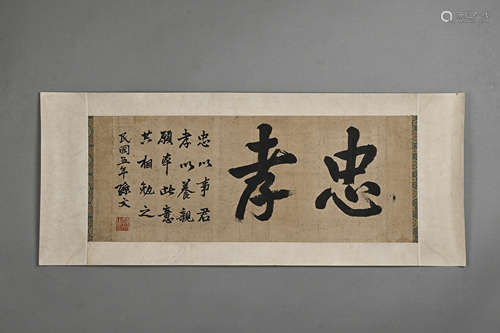 忠孝
忠以事君
孝以養親
願本此意
共相勉之
民國五年孫文